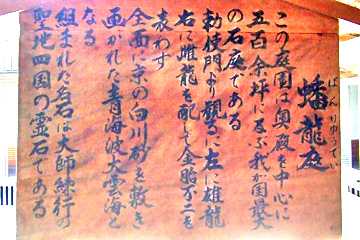 蟠龍庭
ばんりゅうてい
この庭園は奥殿を中心に
五百余坪に及ぶ我が国最大
の石庭である
勅使門より観るに左に雄龍
右に雌龍を配して金胎不二を
表わす
全面に京の白川砂を敷き
画かれた青海波大雲海と
なる
組まれた石は大師緑行の
聖地四国の霊石である